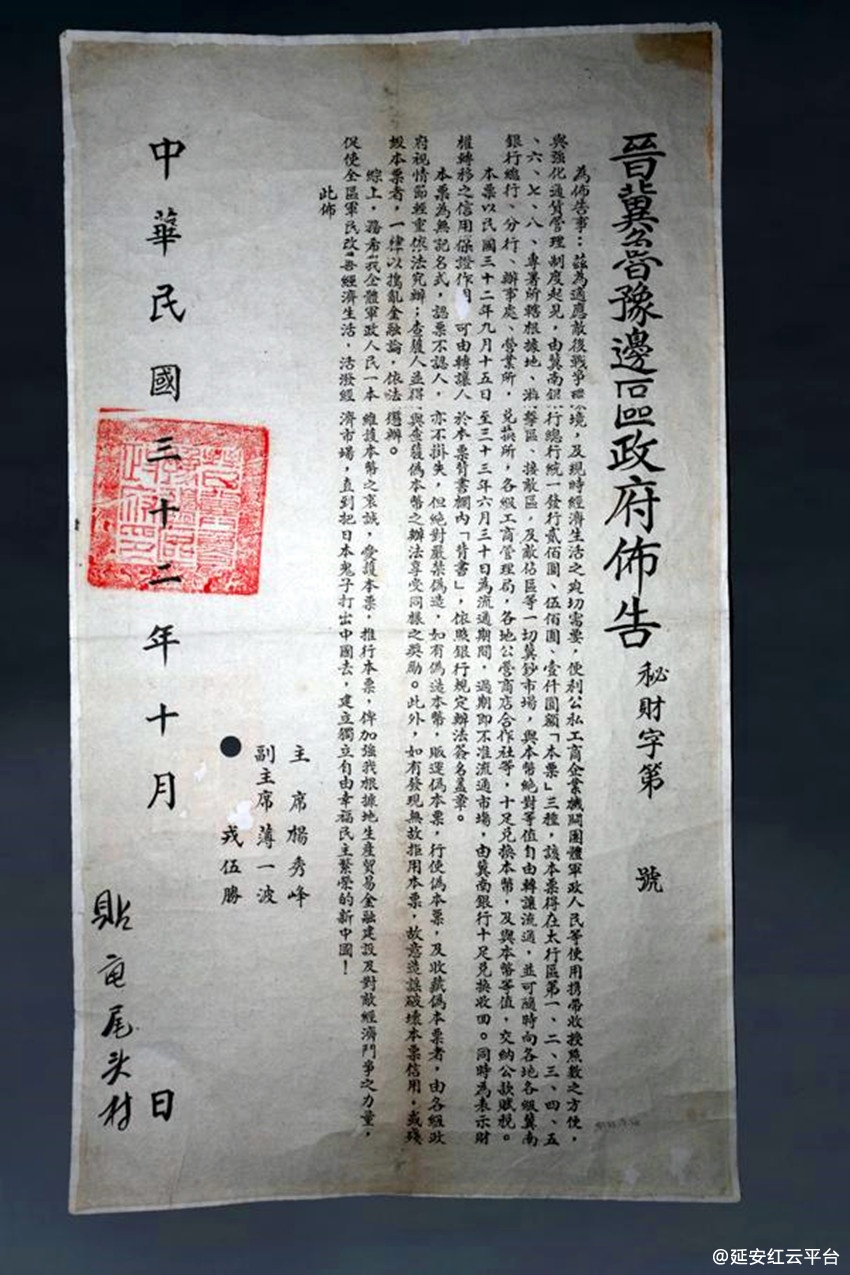 晉冀魯豫邊區政府佈告
秘財字第　號
為佈告事：茲為適應敵後戰爭環境，及現時經濟生活之迫切需要，便利公私工商企業機關團體軍政人民等使用攜帶收授照數之方便，
與強化通貨管理制度起見，由冀南銀行總行統一發行貳佰圓、伍佰圓、壹仟圓額「本票」三種，該本票得在太行區第一、二、三、四、五
、六、七、八、專署所轄根據地、游擊區、接敵區，及敵佔區等一切冀鈔市場，與本幣絕對等值自由轉讓流通，並可隨時向各地各級冀南
銀行總行、分行、辦事處、營業所，兌換所，各級工商管理局，各地公營商店合作社等，十足兌換本幣，及與本幣等值，交納公款賦稅。
本票以民國三十二年九月十五日至三十三年六月三十日為流通期間，過期即不准流通市場，由冀南銀行十足兌換收回。同時為表示財
權轉移之信用保證作用可由轉讓人於本票背書欄內「背書」，依照銀行規定辦法簽名蓋章。
本票為無記名式，認票不認人，亦不掛失，但絕對嚴禁偽造，如有偽造本幣，販運偽本票，行使偽本票，及收藏偽本票者，由各級政
府視情節輕重依法究辦；查獲人並得與查獲偽本幣之辦法享受同樣之獎勵。此外，如有發現無故拒用本票，故意造謠破壞本票信用，或殘
毀本票者，一律以搗亂金融論，依法懲辦。
綜上，務希我全體軍政人民一本維護本幣之衷誠，愛護本票，推行本票，俾加強我根據地生產貿易金融建設及對敵經濟鬥爭之力量，
促使全區軍民改善經濟生活，活潑經濟市場，直到把日本鬼子打出中國去，建立獨立自由幸福民主繁榮的新中國！
此佈
主席 楊秀峰
副主席 薄一波
戎伍勝
中華民國三十二年十月　日
貼
尾头村
@延安红云平台